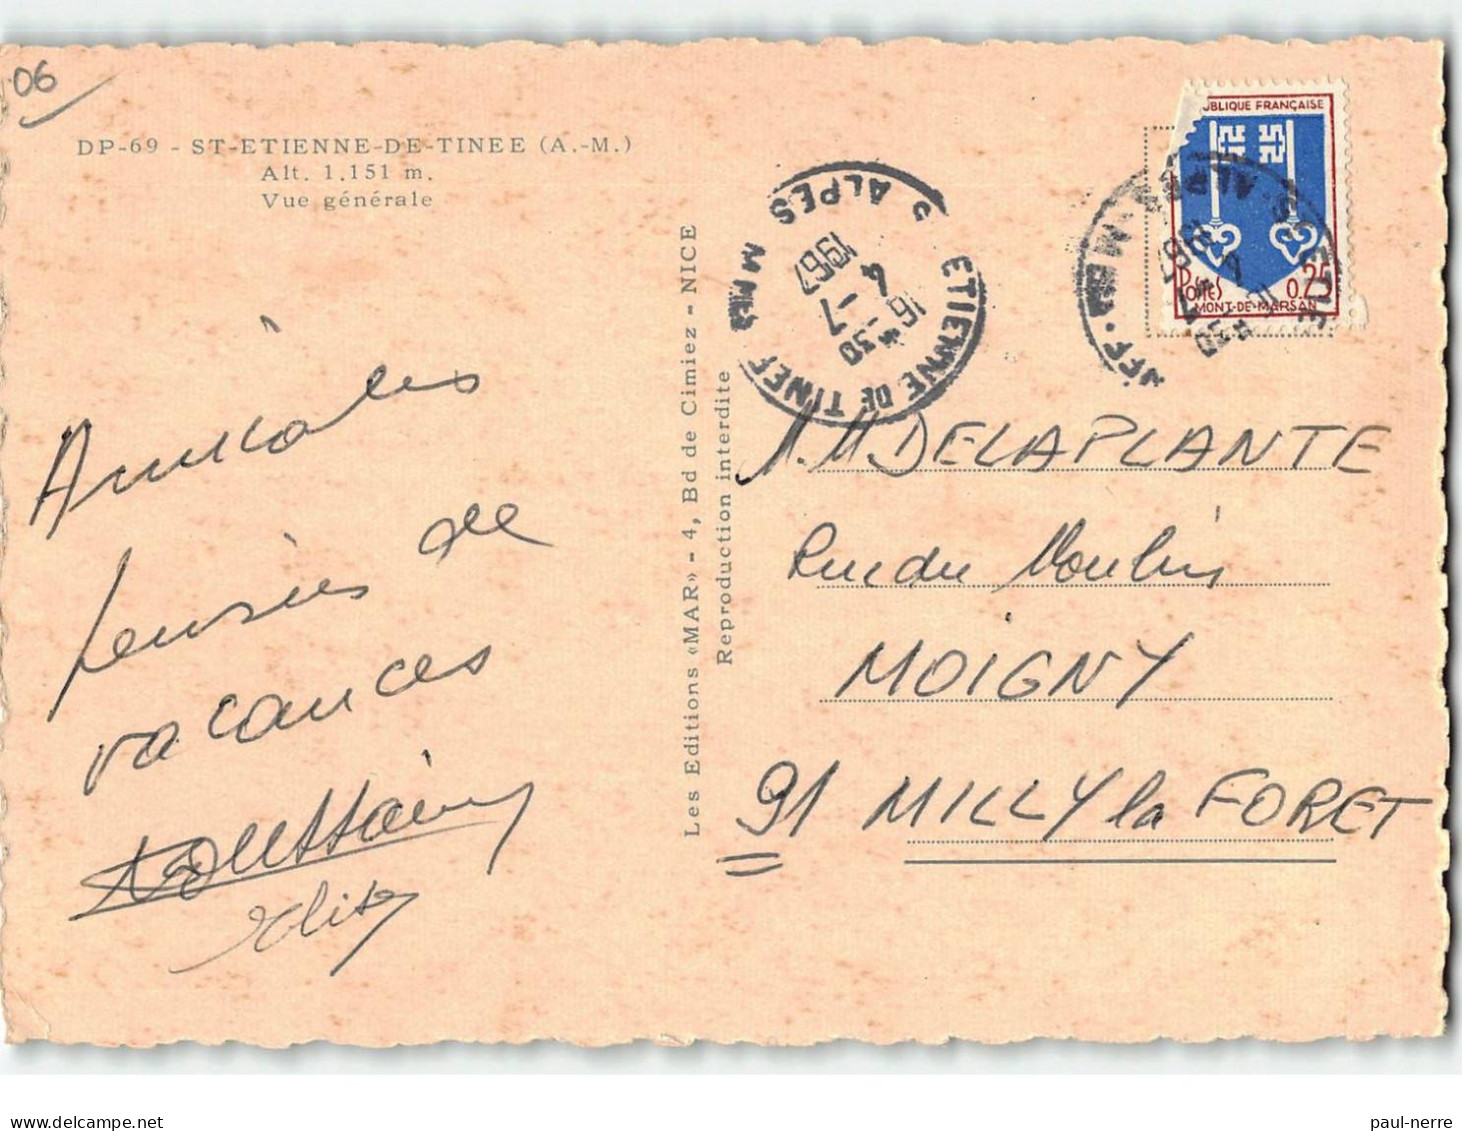 06
DP-69 - ST-ETIENNE-DE-TINEE (A.-M.)
Alt. 1.151 m.
Vue générale
Amicales
pensées de
vacances
Les Editions «MAR» - 4, Bd de Cimiez - NICE
Reproduction interdite
ETIENNE DE TINEE
ALPES MMES
16 H 30
4 - 7
1967
UBLIQUE FRANÇAISE
POSTES 0.25
MONT-DE-MARSAN
M. M. DELAPLANTE
Rue du Moulin
MOIGNY
91 MILLY la FORET
paul-nerre